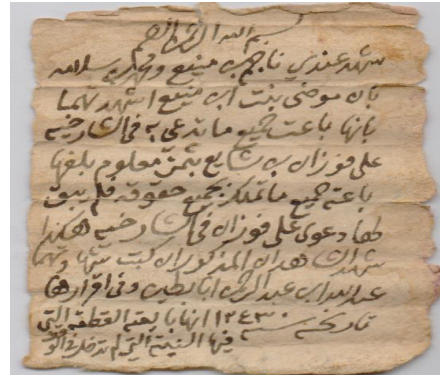 بسم الله الرحمن الرحيم
شهد عندي ناجم بن منيع ومحمد بن عبدالله
بان موضي بنت ابن منيع اشهدتهما
بانها باعت جميع ما تدعي به في الشارخيه
على فوزان بن شايع بثمن معلوم بلغها
باعته جميع ما تملك بجميع حقوقه فلم يبق
لها دعوى على فوزان في الشارخيه هكذا
شهدا الشاهدان المذكوران كتب شهادتهما
عبدالله ابن عبدالرحمن ابابطين وفي اقرارها
تاريخه سنه ١٢٤٣ انها بايعته القطعة التي
فيها النبتة التي لم تدخل في